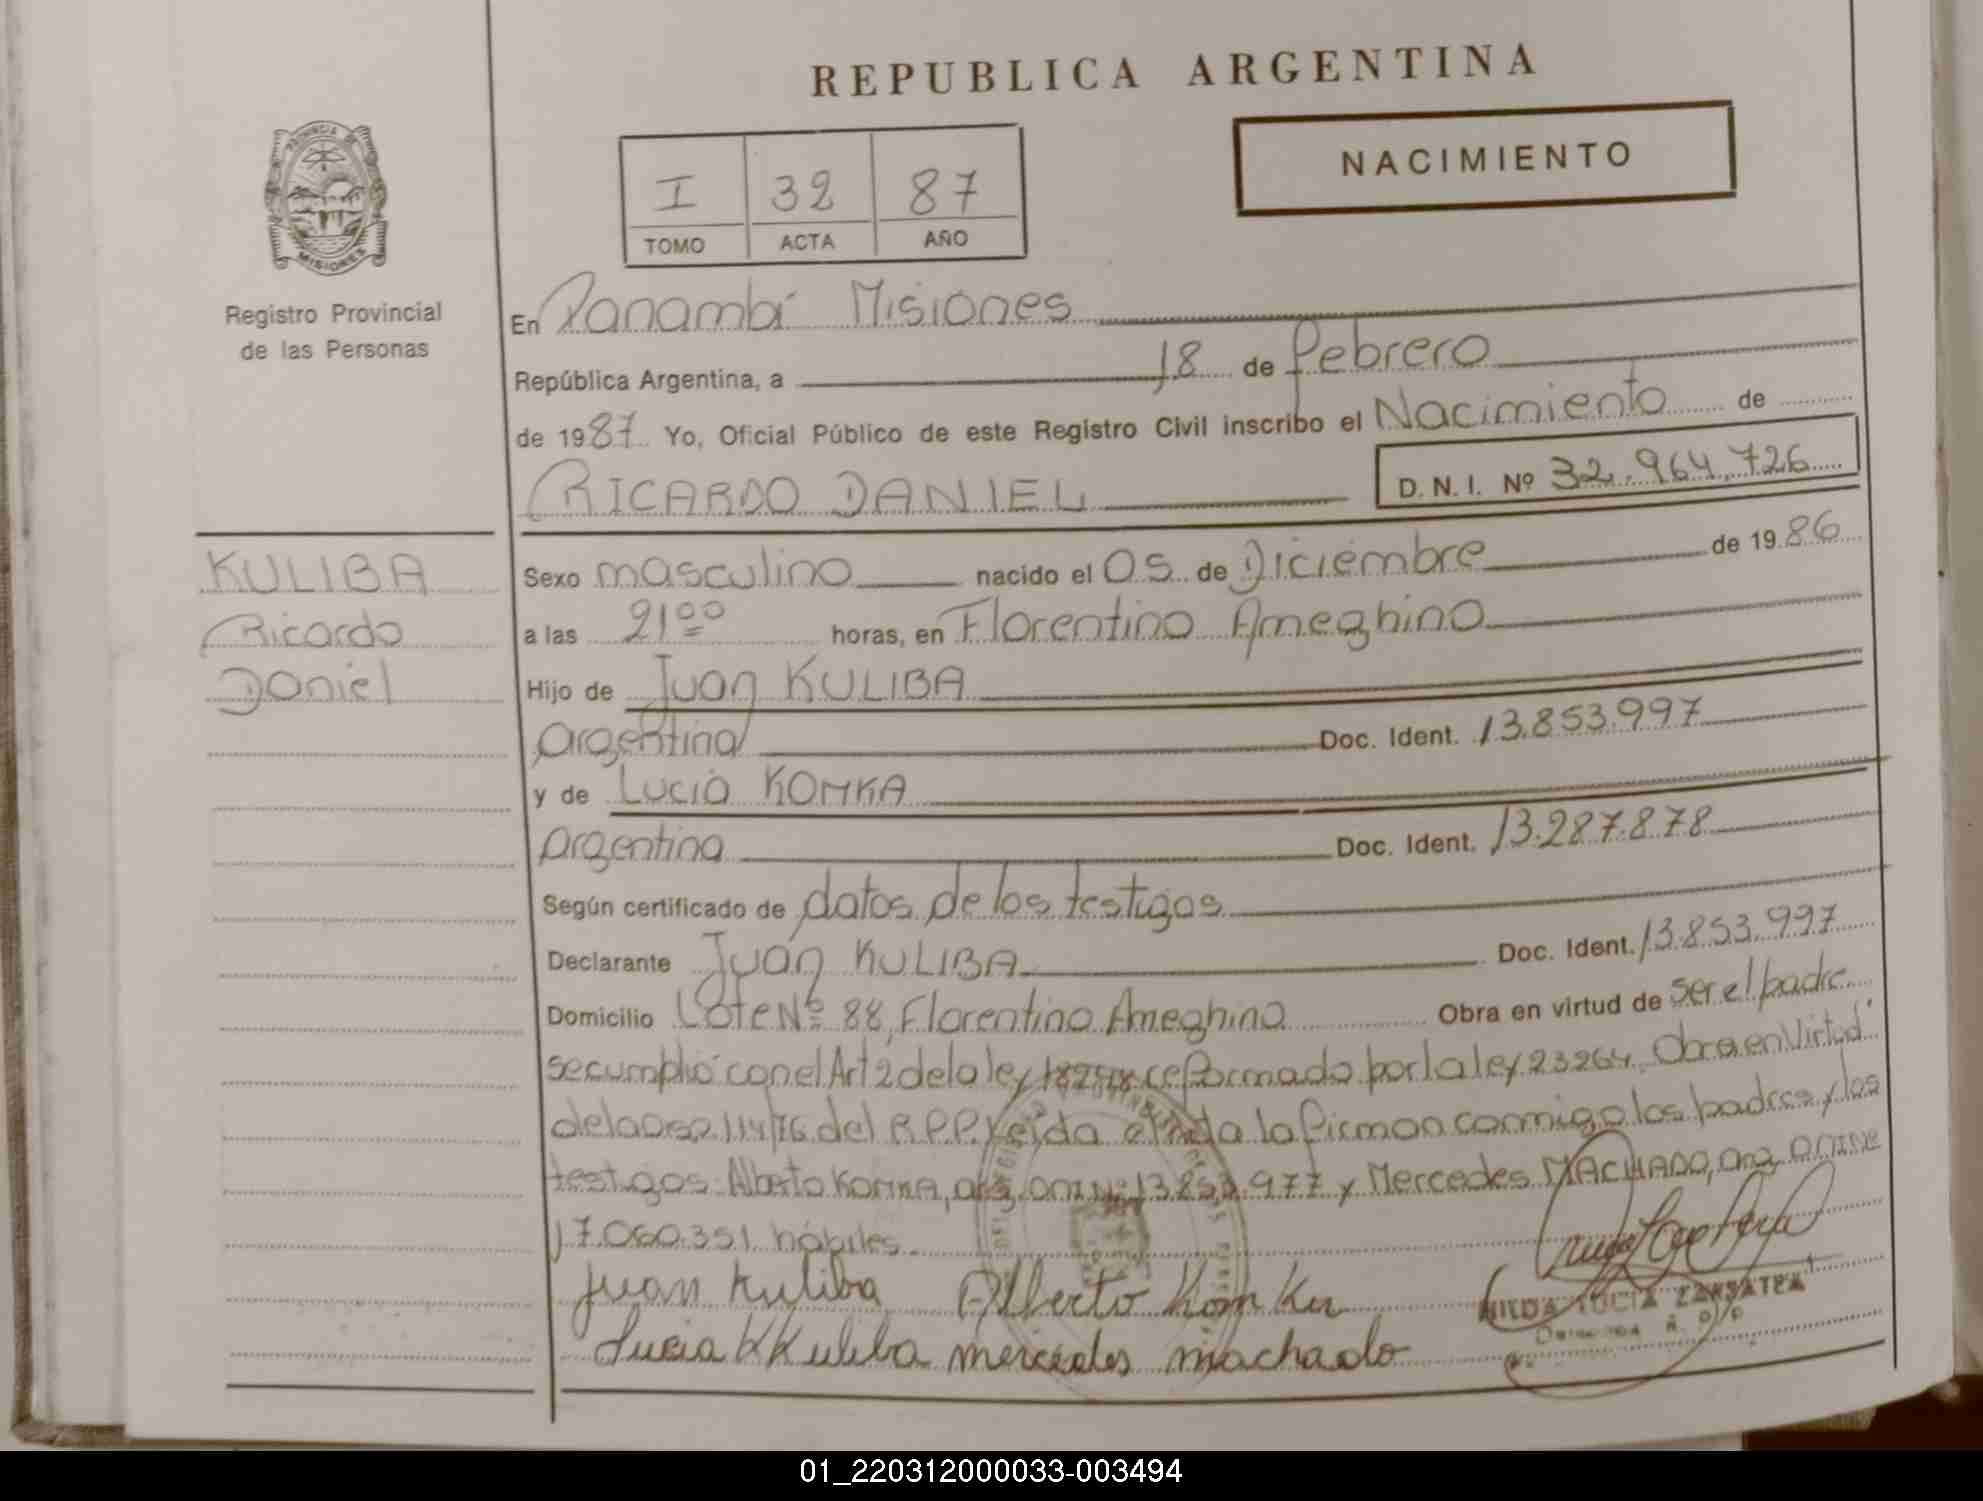 REPUBLICA ARGENTINA
NACIMIENTO
I 32 87
TOMO ACTA AÑO
PROVINCIA DE MISIONES
Registro Provincial
de las Personas
KULIBA
Ricardo
Daniel
En Panambí Misiones
República Argentina, a 18 de febrero
de 1987 Yo, Oficial Público de este Registro Civil inscribo el Nacimiento de
RICARDO DANIEL D. N. I. Nº 32.964.726
Sexo masculino nacido el 05 de Diciembre de 1986
a las 21 00 horas, en Florentino Ameghino
Hijo de Juan KULIBA
argentina Doc. Ident. 13.853.997
y de Lucia KOMKA
argentina Doc. Ident. 13.287.878
Según certificado de datos de los testigos
Declarante Juan KULIBA Doc. Ident. 13.853.997
Domicilio Lote Nº 88, Florentino Ameghino Obra en virtud de ser el padre
se cumplió con el Art 2 de la ley 18248 reformado por la ley 23264, Obra en Virtud
de la 114/76 del R.P.P. Leida el acta la firman conmigo los padres y los
testigos Alberto KOMKA, arg, DNI Nº 13.853.977 y Mercedes MACHADO, arg, DNI Nº
17.060.351 hábiles
Juan Kuliba Alberto Komka
Lucia K Kuliba mercedes machado
HILDA LUCIA
01_220312000033-003494